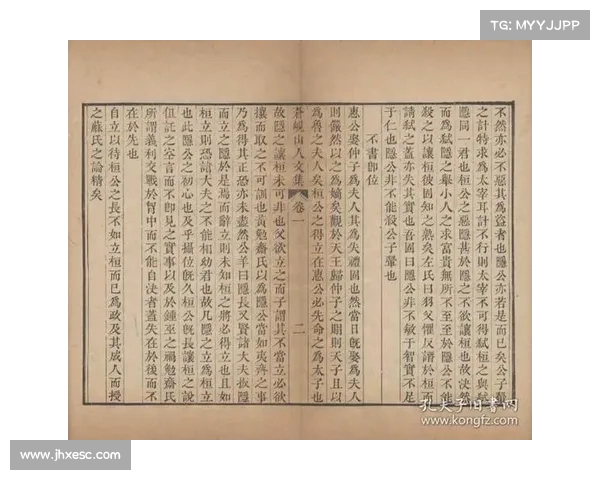 TG: MYYJJPP
不然亦必不惡其爲盜者也隱公亦若是而已矣公子翬
之計特求爲太宰耳計不行則太宰不可得弑桓之與弑
隱同一君也桓公之惡隱甚於隱之不欲讓桓也故決然
而爲弑隱之舉小人之求富貴無所不至至於隱公不能
殺之以讓桓彼固知之熟矣左氏曰羽父懼反譖於桓而
請弑之蓋亦失其實也吾固曰隱公非不敏于智實不足
于仁也隱公非不能殺公子翬也
不書卽位
惠公娶仲子爲夫人其爲失禮固也然當日旣娶爲夫人
則儼然以之爲嫡矣觀於天王歸仲子之賵則天子且以
爲魯之夫人矣桓公之得立在惠公必先命之爲太子也
蒼峴山人文集 卷一 二
故隱之讓桓未可非也父欲立之而子謂其不當立必欲
攘而取之不可訓也黃勉齋氏以爲隱公當如夷齊之事
乃爲得其正恐亦未盡然公羊曰隱長又賢諸大夫扳隱
而立之隱於是焉而辭立則未知桓之將必得立也且如
桓立則恐諸大夫之不能相幼君也故凡隱之立爲桓立
也此隱公之初心也及乎攝位旣久桓公旣長讓桓之說
但託之空言而不卽見之實事以及於鍾巫之禍勉齋氏
所謂義利交戰於胷中而不能自決者蓋失在於後而不
在於先也
自立以待桓公之長不如立桓而已爲政及其成人而授
之蘇氏之論精矣
孔夫子旧书网
www.kongfz.com
www.jhxesc.com